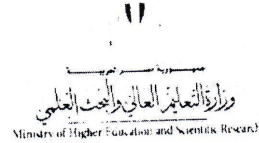 جمهورية مصر العربية
وزارة التعليم العالي والبحث العلمي
Ministry of Higher Education and Scientific Research